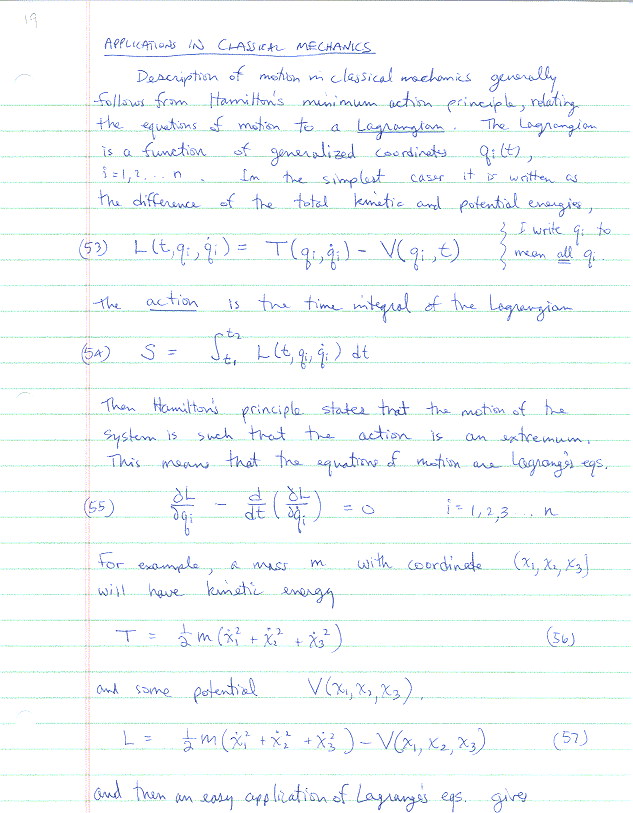 19
APPLICATIONS IN CLASSICAL MECHANICS
Description of motion in classical mechanics generally
follows from Hamilton's minimum action principle, relating
the equations of motion to a Lagrangian. The Lagrangian
is a function of generalized coordinates qᵢ(t),
i=1,2,...n. In the simplest cases it is written as
the difference of the total kinetic and potential energies,
(53) L(t,qᵢ,q̇ᵢ) = T(qᵢ,q̇ᵢ) - V(qᵢ,t) } I write qᵢ to
} mean all qᵢ.
The action is the time integral of the Lagrangian
(54) S = ∫_{t₁}^{t₂} L(t,qᵢ,q̇ᵢ) dt
Then Hamilton's principle states that the motion of the
system is such that the action is an extremum.
This means that the equations of motion are Lagrange's eqs.
(55) ∂L/∂qᵢ - d/dt (∂L/∂q̇ᵢ) = 0 i=1,2,3...n
For example, a mass m with coordinate (x₁, x₂, x₃)
will have kinetic energy
T = ½ m (ẋ₁² + ẋ₂² + ẋ₃²) (56)
and some potential V(x₁, x₂, x₃).
L = ½ m (ẋ₁² + ẋ₂² + ẋ₃²) - V(x₁, x₂, x₃) (57)
and then an easy application of Lagrange's eqs. gives